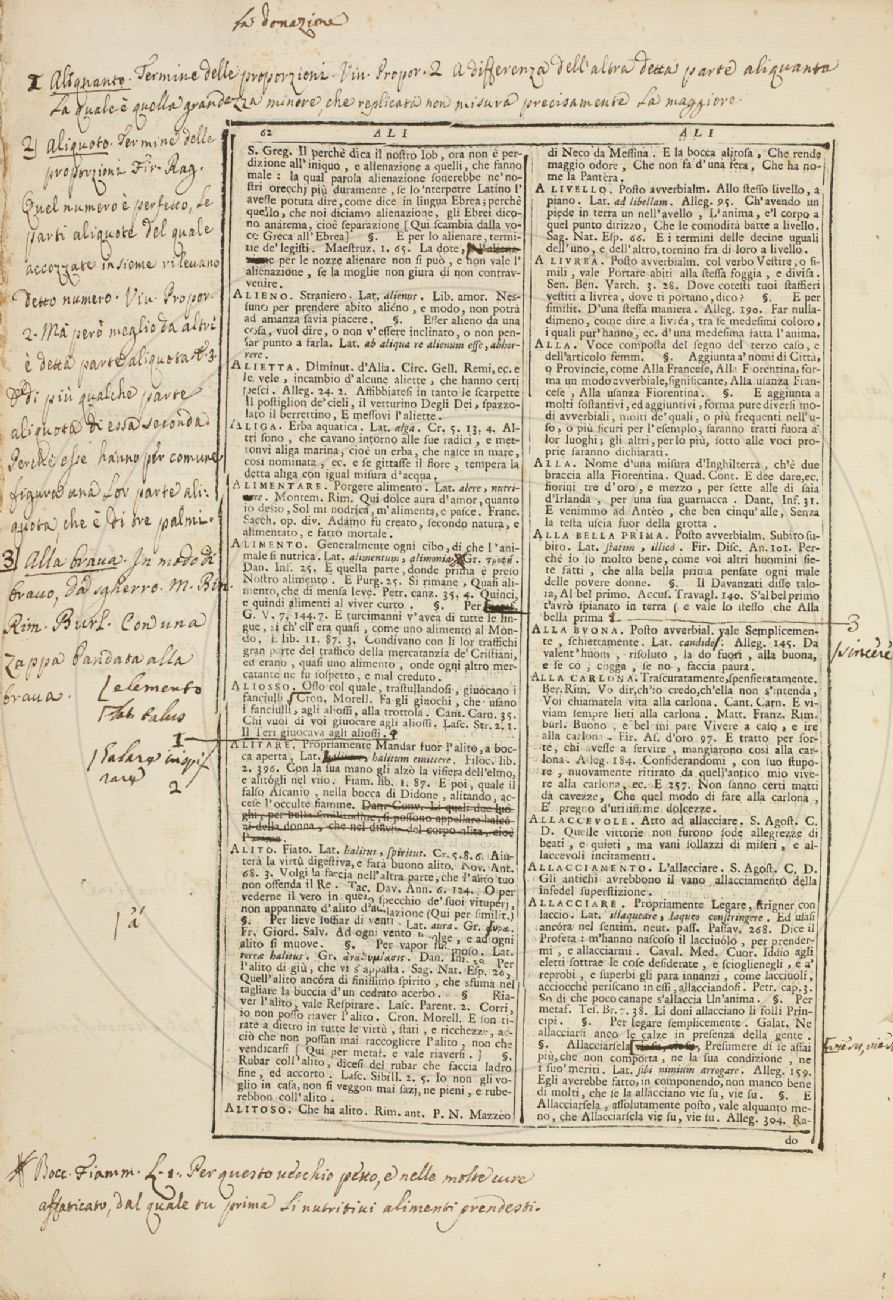 la donazione
1 Aliquanto. Termine delle proporzioni. Viv. Propor. 2 A differenza dell'altra detta parte aliquanta
La quale è quella grandezza minore, che replicata non misura precisamente la maggiore.
2) aliquoto. Termine delle
proporzioni Fir. Rag.
Quel numero è perfetto, le
parti aliquote del quale
accozzate insieme rilevano
detto numero. Viv. Propor.
2. Ma però meglio da altri
è detta parte aliquota
di più qualche parte
aliquota di essa seconda
Perchè esse hanno per comune
figura una lor parte ali-
quota, che è di tre palmi.
3) Alla brava. In modo di
bravo, da sgherro. M. Bin.
Rim. Burl. Con una
zappa bandata alla
brava.
elemento
talus
1
halare inspi
rare
2
à
62 ALI
S. Greg. Il perchè dica il nostro Iob, ora non è per-
dizione all'iniquo, e alienazione a quelli, che fanno
male: la qual parola alienazione sonerebbe ne' no-
stri orecchj più duramente, se lo 'nterpetre Latino l'
avesse potuta dire, come dice in lingua Ebrea; perchè
quello, che noi diciamo alienazione, gli Ebrei dico-
no anátema, cioè separazione [Qui scambia dalla vo-
ce Greca all'Ebrea] §. E per lo alienare, termi-
ne de' legisti. Maestruz. 1. 65. La dote,
per le nozze alienare non si può, e non vale l'
alienazione, se la moglie non giura di non contrav-
venire.
ALIENO. Straniero. Lat. alienus. Lib. amor. Nes-
suno per prendere abito alieno, e modo, non potrà
ad amanza savia piacere. §. Esser alieno da una
cosa, vuol dire, o non v'essere inclinato, o non pen-
sar punto a farla. Lat. ab aliqua re alienum esse, abhor-
rere.
ALIETTA. Diminut. d'Alia. Circ. Gell. Remi, ec. e
le vele, incambio d'alcune aliette, che hanno certi
pesci. Alleg. 24. 2. Affibbiatesi in tanto le scarpette
Il postiglion de' cieli, il vetturino Degli Dei, spazzo-
lato il berrettino, E messovi l'aliette.
ALIGA. Erba aquatica. Lat. alga. Cr. 5. 13. 4. Al-
tri sono, che cavano intorno alle sue radici, e met-
tonvi aliga marina, cioè un erba, che nasce in mare,
così nominata, ec. e se gittasse il fiore, tempera la
detta aliga con igual misura d'acqua.
ALIMENTARE. Porgere alimento. Lat. alere, nutri-
re. Montem. Rim. Qui dolce aura d'amor, quanto
io desio, Sol mi nodrica, m'alimenta, e pasce. Franc.
Sacch. op. div. Adamo fu creato, secondo natura, e
alimentato, e fatto mortale.
ALIMENTO. Generalmente ogni cibo, di che l'ani-
male si nutrica. Lat. alimentum, alimonia. Gr. τροφή.
Dan. Inf. 25. E quella parte, donde prima è preso
Nostro alimento. E Purg. 25. Si rimane, Quasi ali-
mento, che di mensa leve. Petr. canz. 35. 4. Quinci,
e quindi alimenti al viver curto. §. Per
G. V. 7. 144. 7. E turcimanni v'avea di tutte le lin-
gue, sì ch'ell'era quasi, come uno alimento al Mon-
do, E lib. 11. 87. 3. Condivano con li lor traffichi
gran parte del traffico della mercatanzia de' Cristiani,
ed erano, quasi uno alimento, onde ogni altro mer-
catante ne fu sospetto, e mal creduto.
ALIOSSO. Osso col quale, trastullandosi, giuocano i
fanciulli. Cron. Morell. Fa gli giuochi, che usano
i fanciulli, agli aliossi, alla trottola. Cant. Carn. 35.
Chi vuol di voi giuocare agli aliossi. Lasc. Str. 2. 1.
Il Teri giuocava agli aliossi.
ALITARE. Propriamente Mandar fuor l'alito, a boc-
ca aperta, Lat. halitum emittere. Filoc. lib.
2. 396. Con la sua mano gli alzò la visiera dell'elmo,
e alitògli nel viso. Fiam. lib. 1. 87. E poi, quale il
falso Ascanio, nella bocca di Didone, alitando, ac-
cese l'occulte fiamme. Dan. Conv. Li quali due luo-
ghi, per bella similitudine, si possono appellare balco-
ni della donna, che nel dificio del corpo alita, cioè
l'anima.
ALITO. Fiato. Lat. halitus, spiritus. Cr. 5. 8. 6. Aiu-
terà la virtù digestiva, e farà buono alito. Nov. Ant.
68. 3. Volgi la faccia nell'altra parte, che l'alito tuo
non offenda il Re. Tac. Dav. Ann. 6. 124. O per
vederne il vero in que' specchio de' suoi vituperj,
non appannato d'alito d'adulazione (Qui per similit.)
§. Per lieve soffiar di venti. Lat. aura. Gr. αὔρα.
Fr. Giord. Salv. Ad ogni vento volge, e ad ogni
alito si muove. §. Per vapor fumoso. Lat.
terræ halitus. Gr. ἀναθυμίασις. Dan. Inf. Per
l'alito di giù, che vi s'appasta. Sag. Nat. Esp. 262.
Quell'alito ancóra di finissimo spirito, che sfuma nel
tagliare la buccia d'un cedrato acerbo. § Ria-
ver l'alito, vale Respirare. Lasc. Parent. 2. Corri,
io non posso riaver l'alito. Cron. Morell. E son ti-
rate a dietro in tutte le virtù, stati, e ricchezze, ac-
ciò che non possan mai raccogliere l'alito, non che
vendicarsi [Qui per metaf. e vale riaversi.] §.
Rubar coll'alito, dicesi del rubar che faccia ladro
fine, ed accorto. Lasc. Sibill. 2. 5. Io non gli vo-
glio in casa, non si veggon mai sazj, ne pieni, e rube-
rebbon coll'alito.
ALITOSO. Che ha alito. Rim. ant. P. N. Mazzeo
ALI
di Neco da Messina. E la bocca alitosa, Che rende
maggio odore, Che non fa d'una fera, Che ha no-
me la Pantèra.
A LIVELLO. Posto avverbialm. Allo stesso livello, a
piano. Lat. ad libellam. Alleg. 95. Ch'avendo un
piede in terra un nell'avello, L'anima, e'l corpo a
quel punto dirizzo, Che le comodità batte a livello.
Sag. Nat. Esp. 66. E i termini delle decine uguali
dell'uno, e dell'altro, tornino fra di loro a livello.
A LIVREA. Posto avverbialm. col verbo Vestire, o si-
mili, vale Portare abiti alla stessa foggia, e divisa.
Sen. Ben. Varch. 3. 28. Dove cotesti tuoi staffieri
vestiti a livrèa, dove ti portano, dico? §. E per
similit. D'una stessa maniera. Alleg. 190. Far nulla-
dimeno, come dire a livrèa, tra se medesimi coloro,
i quali pur'hanno, ec. d'una medesima fatta l'anima.
ALLA. Voce composta del segno del terzo caso, e
dell'articolo femm. §. Aggiunta a' nomi di Città,
o Provincie, come Alla Francese, Alla Fiorentina, for-
ma un modo avverbiale, significante, Alla usanza Fran-
cese, Alla usanza Fiorentina. §. E aggiunta a
molti sostantivi, ed aggiuntivi, forma pure diversi mo-
di avverbiali, molti de' quali, o più frequenti nell'u-
so, o più sicuri per l'esemplo, saranno tratti fuora a'
lor luoghi; gli altri, per lo più, sotto alle voci pro-
prie saranno dichiarati.
ALLA. Nome d'una misura d'Inghilterra, ch'è due
braccia alla Fiorentina. Quad. Cont. E dee dare, ec.
fiorini tre d'oro, e mezzo, per sette alle di saia
d'Irlanda, per una sua guarnacca. Dant. Inf. 31.
E venimmo ad Antèo, che ben cinqu'alle, Senza
la testa uscia fuor della grotta.
ALLA BELLA PRIMA. Posto avverbialm. Subito su-
bito. Lat. statim, illicò. Fir. Disc. An. 101. Per-
ché io so molto bene, come voi altri huomini sie-
te fatti, che alla bella prima pensate ogni male
delle povere donne. §. Il Davanzati disse talo-
ra, Al bel primo. Accus. Travagl. 140. S'al bel primo
t'avrò spianato in terra ( e vale lo stesso che Alla
bella prima
3
ALLA BUONA. Posto avverbial. vale Semplicemen-
te, schiettamente. Lat. candidè. Alleg. 145. Da
valent'huom, risoluto, la do fuori, alla buona,
e se co, cogga, se no, faccia paura.
sincerè
ALLA CARLONA. Trascuratamente, spensieratamente.
Ber. Rim. Vo dir, ch'io credo, ch'ella non s'intenda,
Voi chiamatela vita alla carlona. Cant. Carn. E vi-
viam sempre lieti alla carlona. Matt. Franz. Rim.
burl. Buono, e bel mi pare Vivere a caso, e ire
alla carlona. Fir. As. d'oro 97. E tratto per sor-
te, chi avesse a servire, mangiarono così alla car-
lona. Alleg. 184. Considerandomi, con suo stupo-
re, nuovamente ritirato da quell'antico mio vive-
re alla carlona, ec. E 257. Non sanno certi matti
da cavezze, Che quel modo di fare alla carlona,
E' pregno d'utilissime dolcezze.
ALLACCEVOLE. Atto ad allacciare. S. Agost. C.
D. Quelle vittorie non furono sode allegrezze di
beati, e quieti, ma vani sollazzi di miseri, e al-
laccevoli incitamenti.
ALLACCIAMENTO. L'allacciare. S. Agost. C. D.
Gli antichi avrebbono il vano allacciamento della
infedel superstizione.
ALLACCIARE. Propriamente Legare, strigner con
laccio. Lat. illaqueare, laqueo constringere. Ed usasi
ancóra nel sentim. neut. pass. Passav. 268. Dice il
Profeta: m'hanno nascoso il lacciuólo, per prender-
mi, e allacciarmi. Caval. Med. Cuor. Iddio agli
eletti sottrae le cose desiderate, e scioglienegli, e a'
reprobi, e superbi gli para innanzi, come lacciuoli,
acciocchè periscano in essi, allacciandosi. Petr. cap. 3.
So di che poco canape s'allaccia Un'anima. §. Per
metaf. Tes. Br. 7. 38. Li doni allacciano li folli Prin-
cipi. §. Per legare semplicemente. Galat. Ne
allacciarsi anco le calze in presenza della gente.
§. Allacciarsela Presumere di se assai
più, che non comporta, ne la sua condizione, ne
i suo' meriti. Lat. sibi nimium arrogare. Alleg. 159.
Egli averebbe fatto, in componendo, non manco bene
di molti, che se la allacciano vie su, vie su. §. E
Allacciarsela, assolutamente posto, vale alquanto me-
no, che Allacciarsela vie su, vie su. Alleg. 304. Ra-
do
Bocc. Fiamm. L. 1. Per questo vecchio petto, e nelle molte cure
affaticato, dal quale tu prima li nutritivi alimenti prendesti.